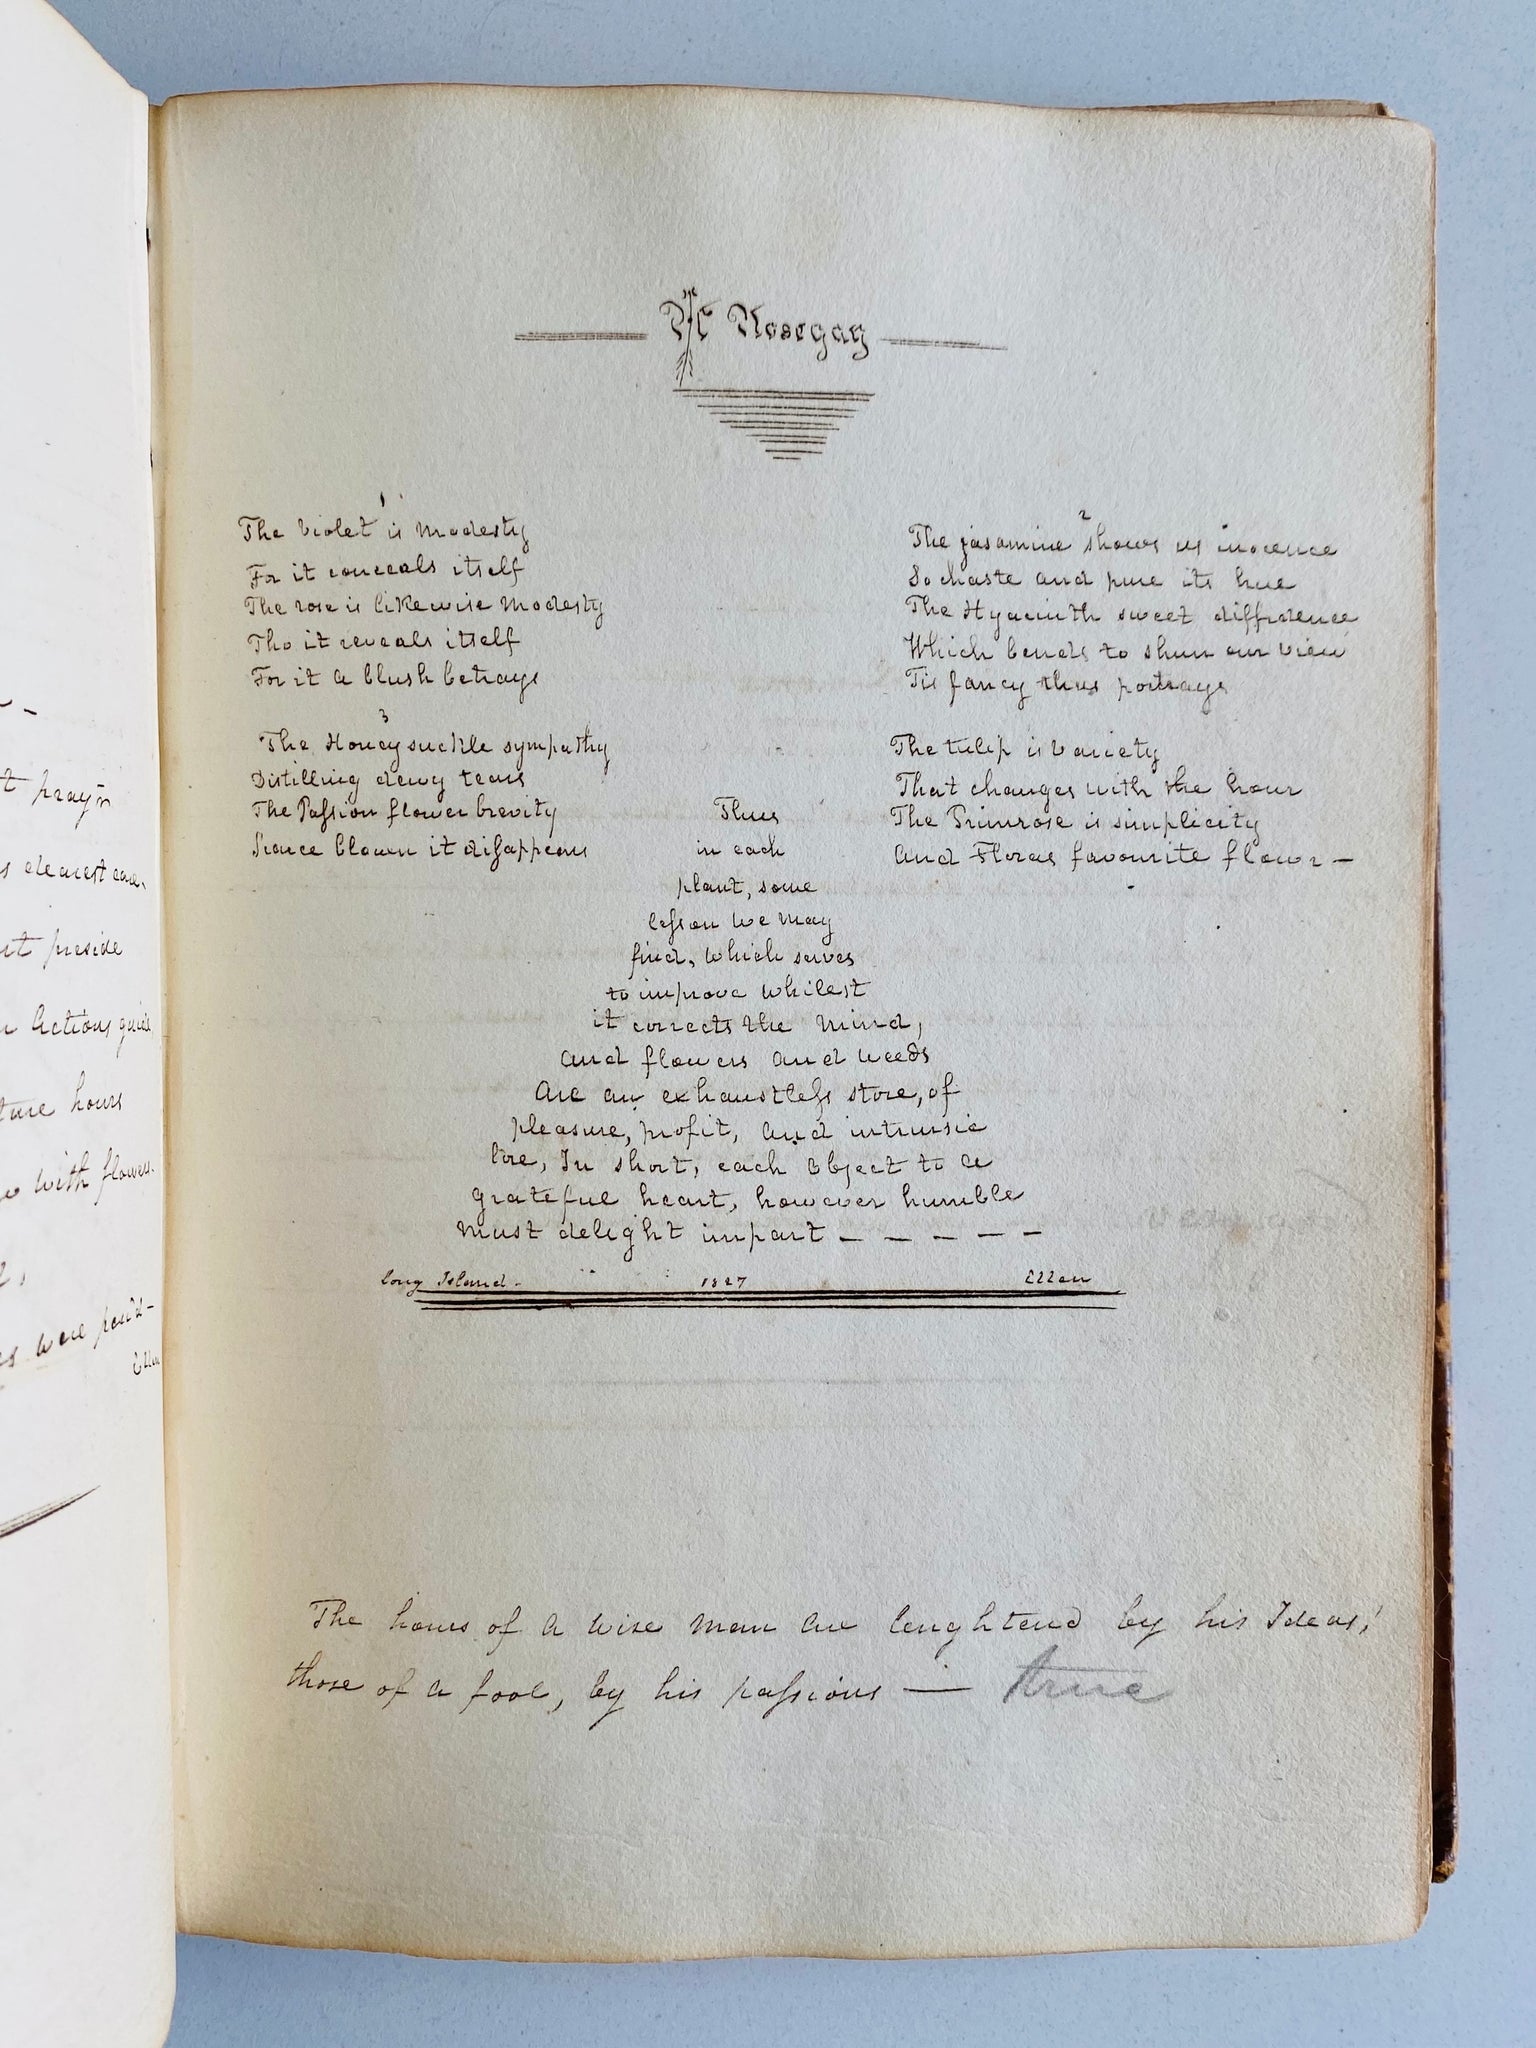 t pray'r
s dearest care,
rt preside
r Actions guide
ture hours
w with flowers.
es were pen'd-
Ellen
A Nosegay
1
The Violet is Modesty
For it conceals itself
The rose is likewise Modesty
Tho it reveals itself
For it a blush betrays
2
The jasamine shows us inocence
So chaste and pure its hue
The Hyacinth sweet diffrdence
Which bends to shun our view
Tis fancy thus portrays
3
The Honeysuckle sympathy
Distilling dewy tears
The Passion flower brevity
Scarce blown it disappears
The tulip is Variety
That changes with the hour
The Primrose is simplicity
And Floras favourite flowr —
Thus
in each
plant, some
lesson we May
find, which serves
to improve whilest
it corrects the Mind,
and flowers and weeds
Are an exhaustless store, of
pleasure, profit, and intrinsic
lore, In short, each Object to a
grateful heart, however humble
Must delight impart — — — — —
Long Island - 1827 Ellen
The hours of A Wise Man Are lenghtend by his Ideas,
those of A fool, by his passions — true